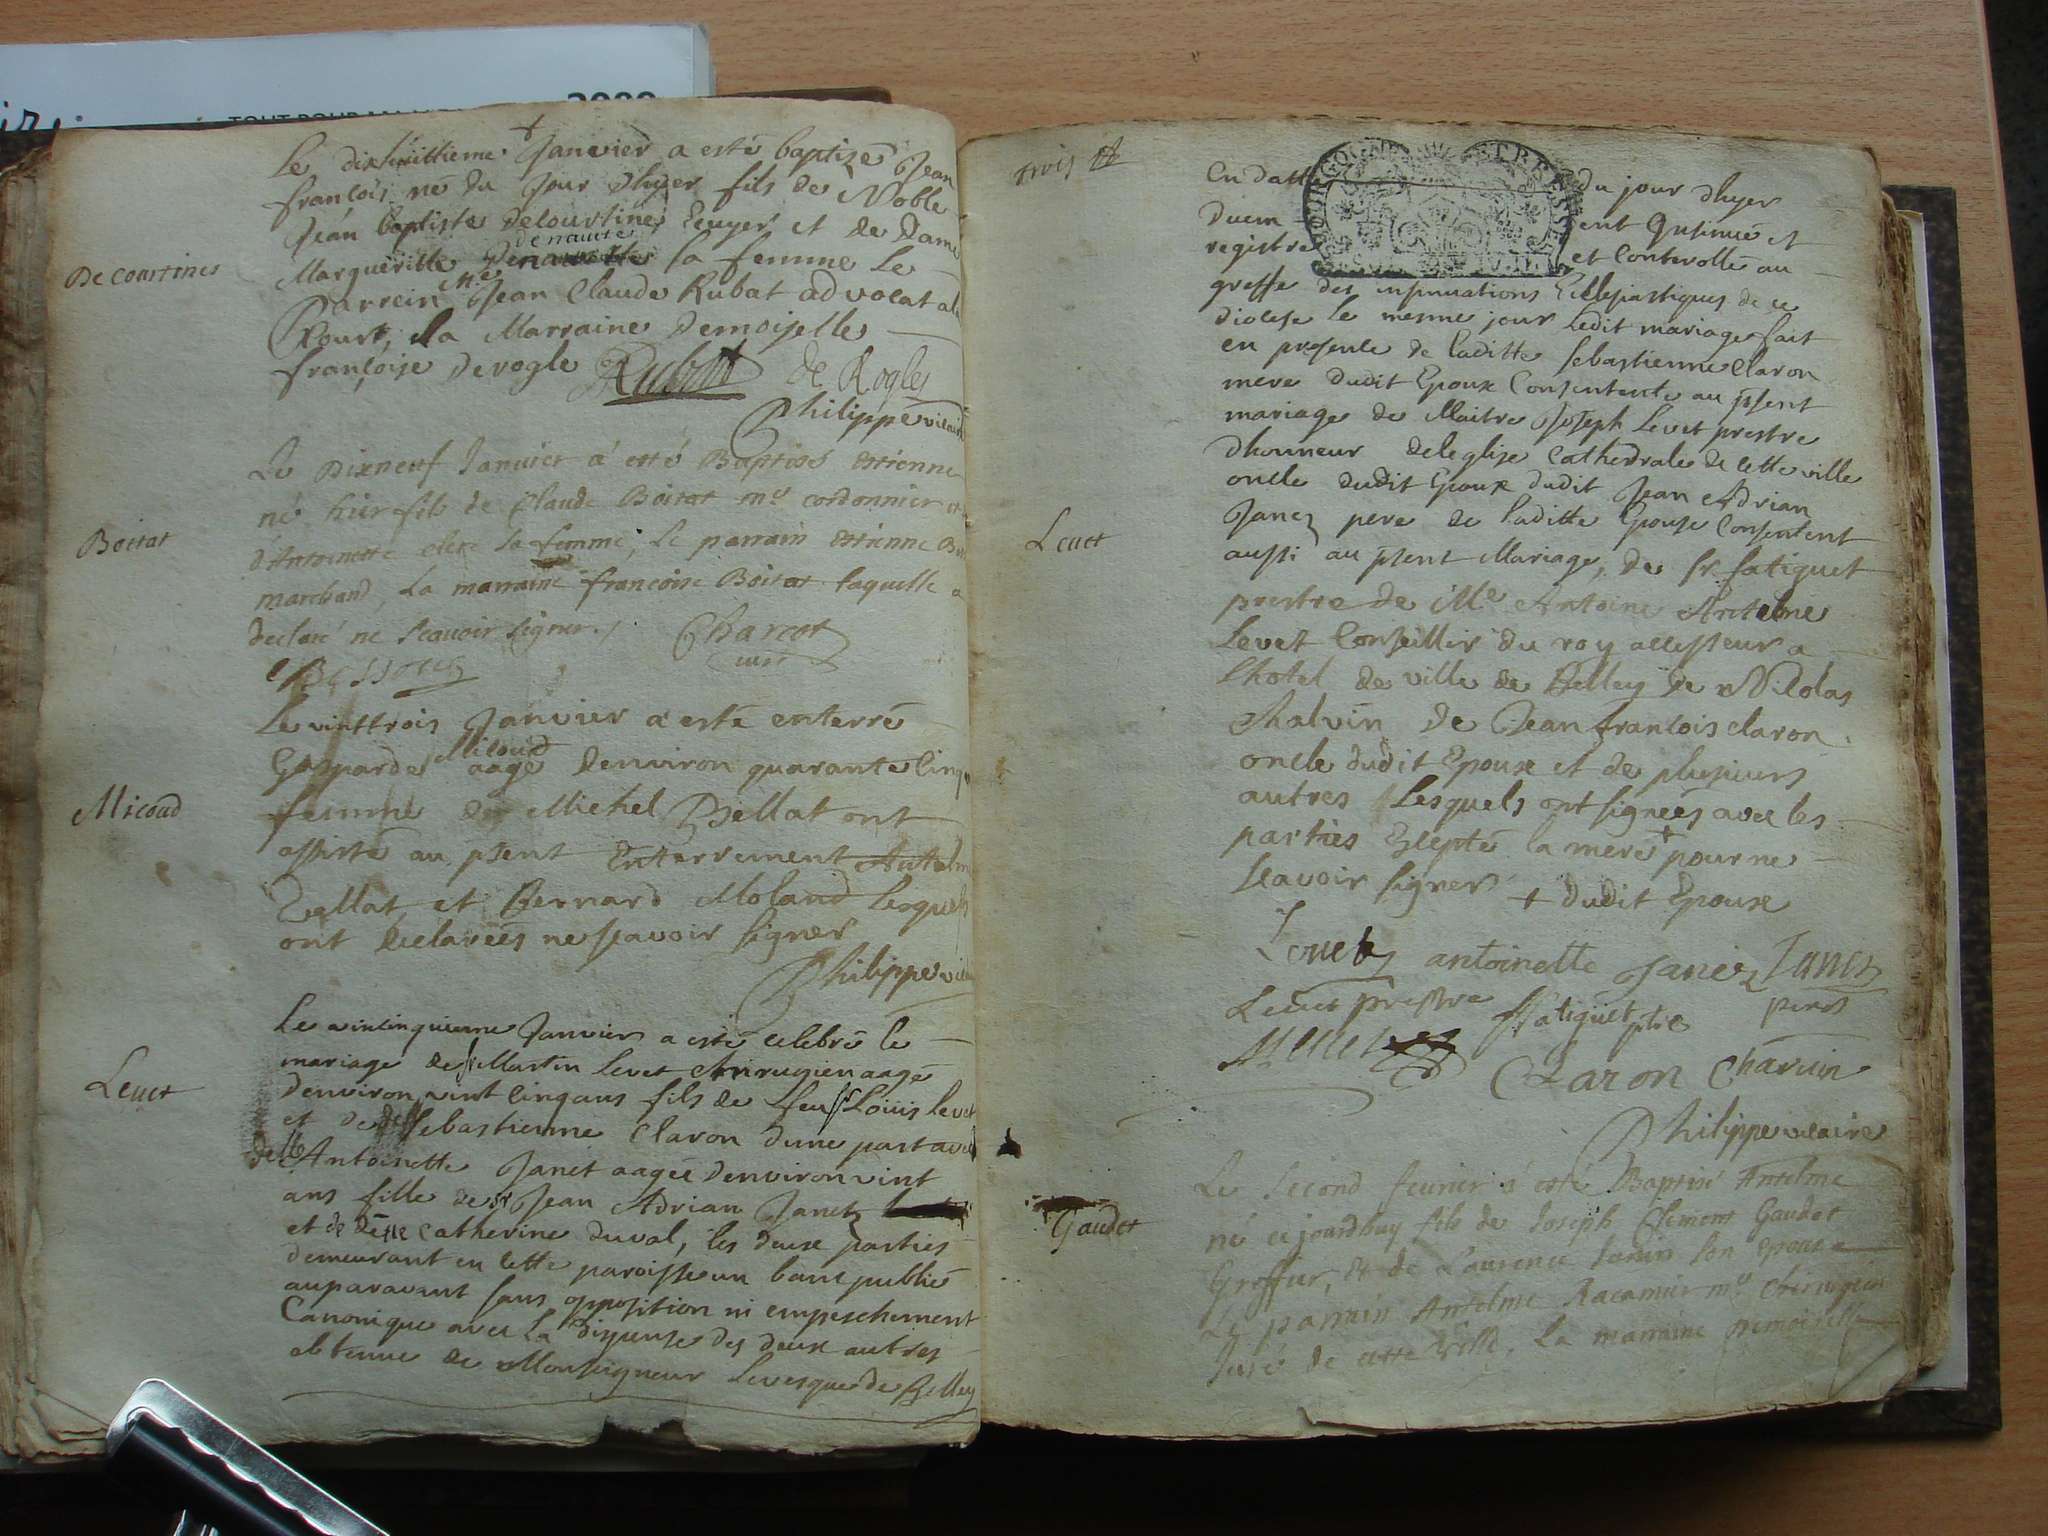 Le dixhuittieme Janvier a esté baptizé Jean
françois né du jour dhyer fils de Noble
Jean baptiste Decourtines Ecuyer et de Dame
Margueritte denavette la femme Le
De Courtines
Parrein Me Jean Claude Rubat advocat a la
Court, la Marraine Demoiselle
françoise Derogle Rubat de Rogles
Philippe vicaire
Le Dixneuf Janvier à esté Baptisé Estienne
né hier fils de Claude Boitat me cordonnier et
Boitat
d'Antoinette clerc sa femme, Le parrain Estienne
marchand, La marraine francoise Boitat laquelle a
declaré ne scavoir signer. Charcot
curé
Le vinttrois Janvier a esté enterré
Gasparde Micoud aagé denviron quarante cinq
Micoud
femme de Michel Bellat ont
assisté au psent Enterrement Antelm
Bellat et Bernard Moland Lesquels
ont declarées ne scavoir signer
Philippe vic
Le vintcinquieme Janvier a esté celebré le
mariage de sr Martin Levet chirugien aagé
Levet
denviron vint cinq ans fils de feu sr Loüis Levet
et de delle Sebastienne Claron dune part avec
delle Antoinette Janet aagée denviron vint
ans fille de sr Jean Adrian Janet
et de delle Catherine duval, les deux parties
demeurant en cette paroisse un banc publié
auparavant sans opposition ni empeschement
Canonique avec la dispense des deux autres
obtenue de Monseigneur Levesque de Belley
trois
En datte du jour dhyer
BOURGOGNE ET BRESSE
duem ent Insinué et
registre et Controllé au
greffe des insinuations Ecclesiastiques de ce
diocese le mesme jour Ledit mariage fait
en presence de laditte Sebastienne Claron
mere dudit Epoux Consentente au psent
mariage de Maitre Joseph Levet prestre
dhonneur deleglise Cathedrale de cette ville
oncle dudit Epoux dudit Jean Adrian
Janez pere de laditte Epouse Consentent
Levet
aussi au psent Mariage, de sr fatiguet
prestre de Me Antoine Antelme
Levet Conseillir du roy assesseur a
lhotel de ville de Belley de Nicolas
Chalvin de Jean françois claron
oncle dudit Epoux et de plusieurs
autres Lesquels ont signées avec les
parties Exepté la mere + pour ne
scavoir signer + dudit Epoux
Levet antoinette Janez Janez
Levet prestre ffatiguet ptre pere
Claron Charuin
Philippe vicaire
Le second fevrier à esté Baptisé Antelme
né ce jourdhuy fils de Joseph Clement Gaudet
Gaudet
Greffier, et de Laurence Janin son epouse
Le parrain Antelme Racamier me chirurgien
Juré de cette Ville, La marraine Demoiselle